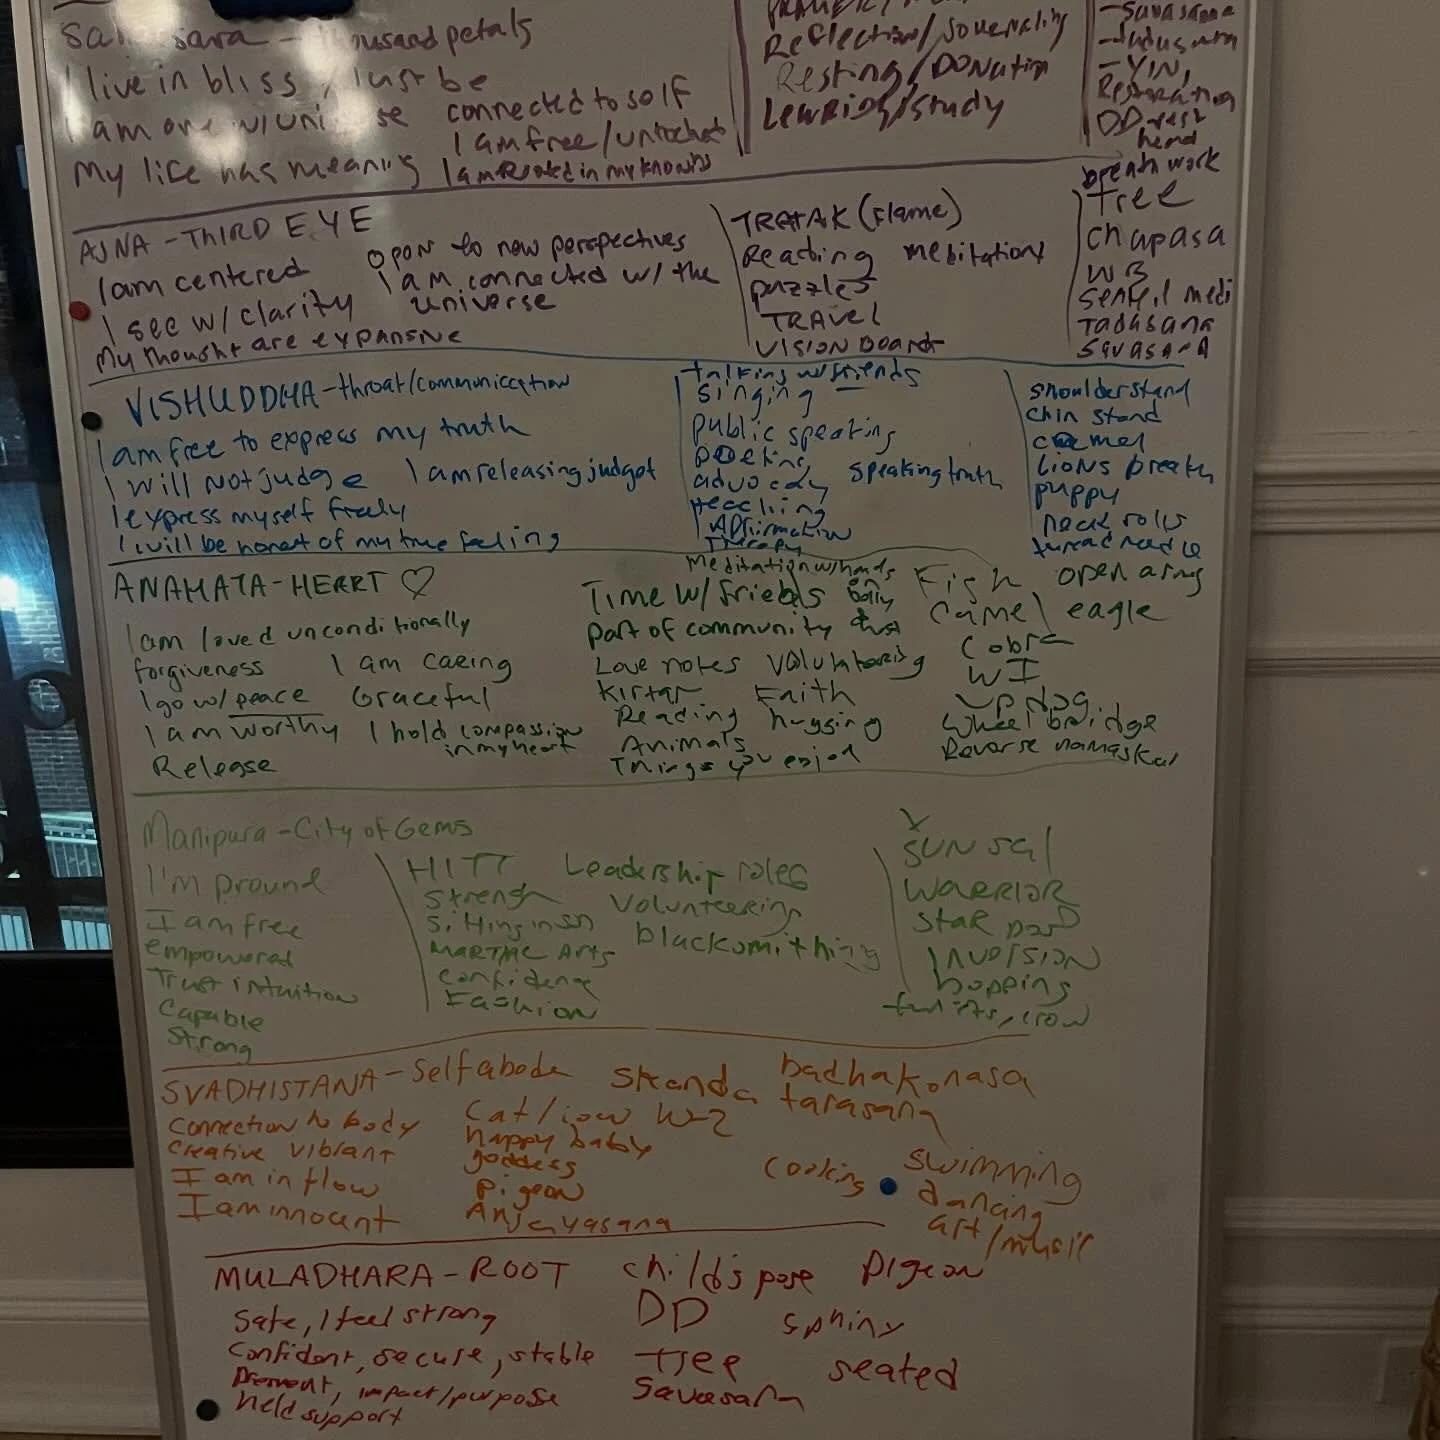 thousand petals
I live in bliss, I just be
I am one w/ connected to self
I am free/
My life has meaning
Reflection/Journaling
Resting/DONATION
Learning/study
-Savasana
-YIN,
DD-rest
head
breath work
AJNA - THIRD EYE
I am centered
Open to new perspectives
I see w/ clarity
I am connected w/ the
universe
My thought are expansive
TRATAK (Flame)
Reading meditation
puzzles
TRAVEL
VISION BOARD
Tree
Chapasa
Tadasana
Savasana
VISHUDDHA - throat/communication
I am free to express my truth
I will not judge I am releasing
I express myself freely
I will be honest of my true feeling
talking w/ friends
singing
public speaking
advocacy speaking truth
teaching
Affirmation
Therapy
shoulderstand
chin stand
camel
Lions breath
puppy
neck rolls
ANAHATA - HEART ♡
I am loved unconditionally
forgiveness I am caring
I go w/ peace Graceful
I am worthy I hold compassion
in my heart
Release
Meditation w/ hands
Time w/
part of community
Love notes
Kirtan Faith
Reading hugging
Animals
Things you
Fish open arms
Camel eagle
Cobra
WI
up dog
Wheel bridge
Reverse namaskar
Manipura - City of Gems
I'm pround
I am free
empowered
Trust intuition
Capable
Strong
HITT Leadership roles
Strength Volunteering
Sitting in sun
MARTIAL Arts blacksmithing
Confidence
Fashion
SUN sal
WARRIOR
STAR
INVERSION
hopping
SVADHISTANA - Self abode
Connection to body
creative vibrant
I am in flow
I am innocent
Skanda badhakonasa
tarasana
Cat/cow W-2
happy baby
goddess
Pigeon
Anjayasana
cooking
swimming
dancing
art/music
MULADHARA - ROOT
Safe, I feel strong
Confident, secure, stable
impact/purpose
held support
child's pose Pigeon
DD
Tree seated
Savasana